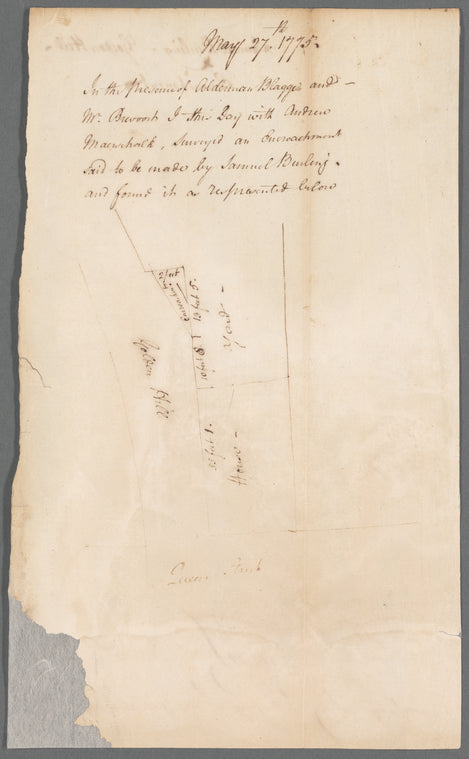 May 27.th 1775.
In the Presence of Alderman Blagge and
Mr. Brevoort I this Day with Andrew
Maerschalk, Surveyed an Encroachment
said to be made by Samuel Burling
and found it as represented below
2 feet
Encroachment
Golden Hill
Yard
House
Queen Street